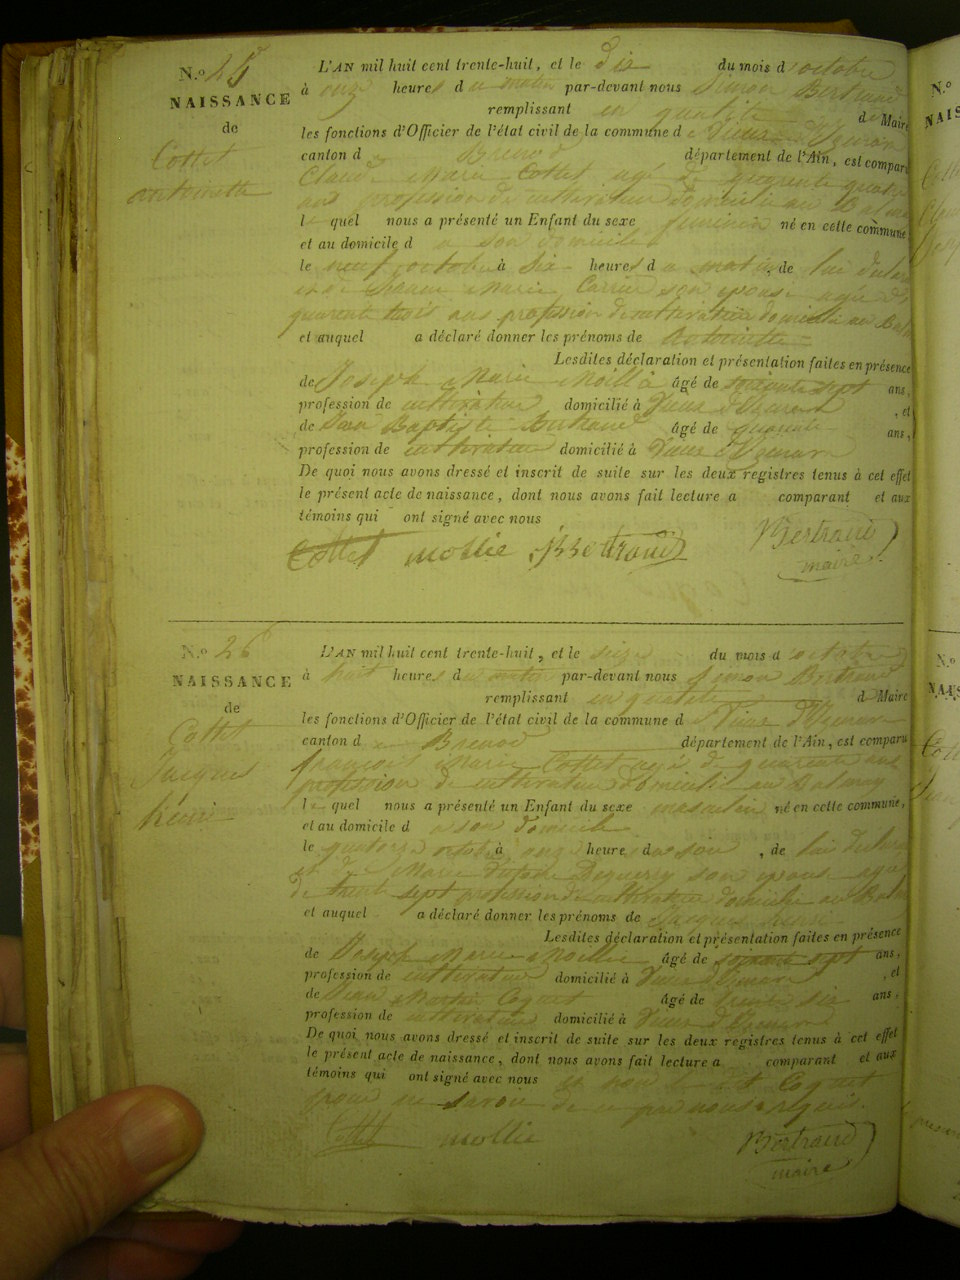 N.o 25
NAISSANCE
de
Cottet
antoinette
L'AN mil huit cent trente-huit, et le dix du mois d'octobre
à onze heures du matin par-devant nous Simon Bertrand
remplissant en qualité de Maire
les fonctions d'Officier de l'état civil de la commune de Vieux d'Yzenave
canton de Brenod département de l'Ain, est comparu
Claude Marie Cottet agé de quarente quatre
ans profession de cultivateur domicilié au Balmay
le quel nous a présenté un Enfant du sexe feminin né en cette commune
et au domicile d a son domicile
le neuf octobre à six heures du matin, de lui déclarant
et de Marie Carrier son epouse agée de
quarente trois ans profession de cultivatrice domiciliée au Balmay
et auquel a déclaré donner les prénoms de Antoinette
Lesdites déclaration et présentation faites en présence
de Joseph Marie Mollie âgé de soixante sept ans,
profession de cultivateur domicilié à Vieux d'Yzenave, et
de Jean Baptiste Bertrand âgé de quarante ans,
profession de cultivateur domicilié à Vieux d'Yzenave
De quoi nous avons dressé et inscrit de suite sur les deux registres tenus à cet effet
le présent acte de naissance, dont nous avons fait lecture a comparant et aux
témoins qui ont signé avec nous
Cottet mollie JB Bertrand Bertrand
maire
N.o 26
NAISSANCE
de
Cottet
Jacques
henri
L'AN mil huit cent trente-huit, et le seize du mois d'octobre
à huit heures du matin par-devant nous Simon Bertrand
remplissant en qualité d Maire
les fonctions d'Officier de l'état civil de la commune d Vieux d'Yzenave
canton de Brenod département de l'Ain, est comparu
françois Marie Cottet agé de quarente ans
profession de cultivateur domicilié au Balmay
le quel nous a présenté un Enfant du sexe masculin né en cette commune,
et au domicile d a son domicile
le quatorze octobre à onze heure du soir, de lui déclarant
et de Marie son epouse agée
de trente sept profession de cultivatrice domiciliée au Balmay
et auquel a déclaré donner les prénoms de Jacques henri
Lesdites déclaration et présentation faites en présence
de Joseph Marie Mollie âgé de soixante sept ans,
profession de cultivateur domicilié à Vieux d'Yzenave, et
de Jean Marie Coquet âgé de trente six ans,
profession de cultivateur domicilié à Vieux d'Yzenave
De quoi nous avons dressé et inscrit de suite sur les deux registres tenus à cet effet
le présent acte de naissance, dont nous avons fait lecture a comparant et aux
témoins qui ont signé avec nous et non Coquet
pour ne savoir de ce par nous requis.
Cottet mollie Bertrand
maire